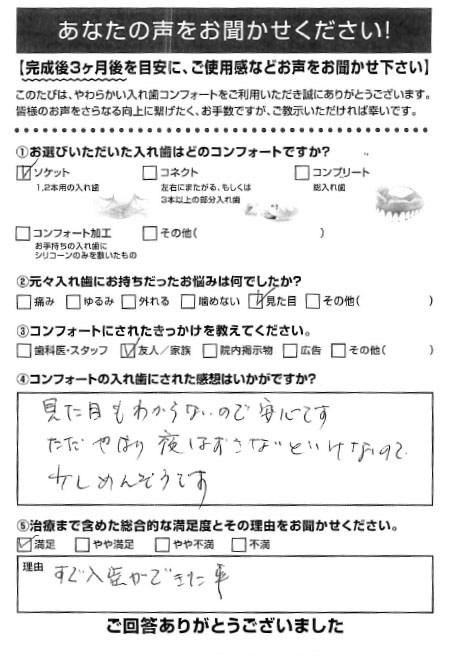 あなたの声をお聞かせください!
【完成後3ヶ月後を目安に、ご使用感などお声をお聞かせ下さい】
このたびは、やわらかい入れ歯コンフォートをご利用いただき誠にありがとうございます。
皆様のお声をさらなる向上に繋げたく、お手数ですが、ご教示いただければ幸いです。
①お選びいただいた入れ歯はどのコンフォートですか?
☑ソケット □コネクト □コンプリート
1,2本用の入れ歯 左右にまたがる、もしくは 総入れ歯
3本以上の部分入れ歯
□コンフォート加工 □その他( )
お手持ちの入れ歯に
シリコーンのみを敷いたもの
②元々入れ歯にお持ちだったお悩みは何でしたか?
□痛み □ゆるみ □外れる □噛めない ☑見た目 □その他( )
③コンフォートにされたきっかけを教えてください。
□歯科医・スタッフ ☑友人/家族 □院内掲示物 □広告 □その他( )
④コンフォートの入れ歯にされた感想はいかがですか?
見た目もわからないので安心です
ただやはり夜はずさないといけないので
少しめんどうです
⑤治療まで含めた総合的な満足度とその理由をお聞かせください。
☑満足 □やや満足 □やや不満 □不満
理由 すぐ入歯ができた事
ご回答ありがとうございました